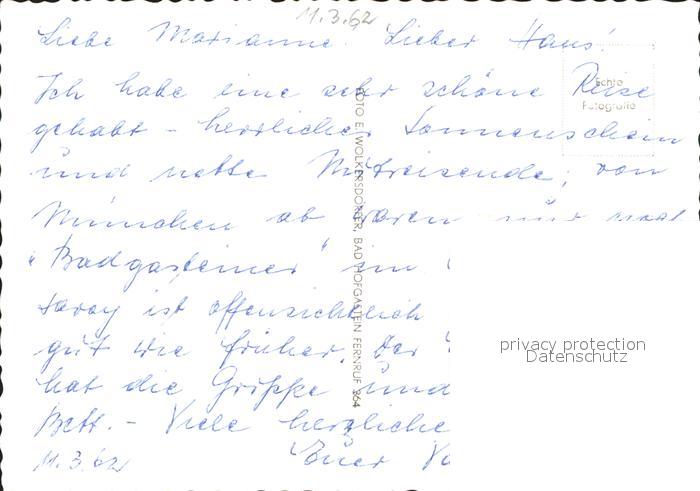 11.3.62
Liebe Marianne! Lieber Hans!
Ich habe eine sehr schöne Reise
Echte
Fotografie
gehabt - herrlicher Sonnenschein
und nette Mitreisende, von
München ab waren nur
"Badgasteiner" im
ist offensichtlich
gut wie früher. Der
hat die Grippe und
Bett. - Viele herzliche
11.3.62 Euer
FOTO E. WOLKERSDORFER, BAD HOFGASTEIN FERNRUF 264
privacy protection
Datenschutz